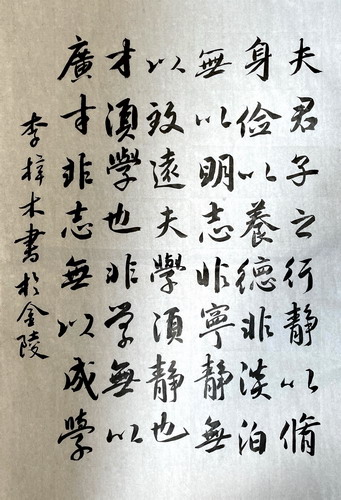 夫君子之行静以脩
身俭以養德非淡泊
無以明志非寧静無
以致遠夫學須静也
才須學也非学無以
廣才非志無以成學
李梓木書於金陵